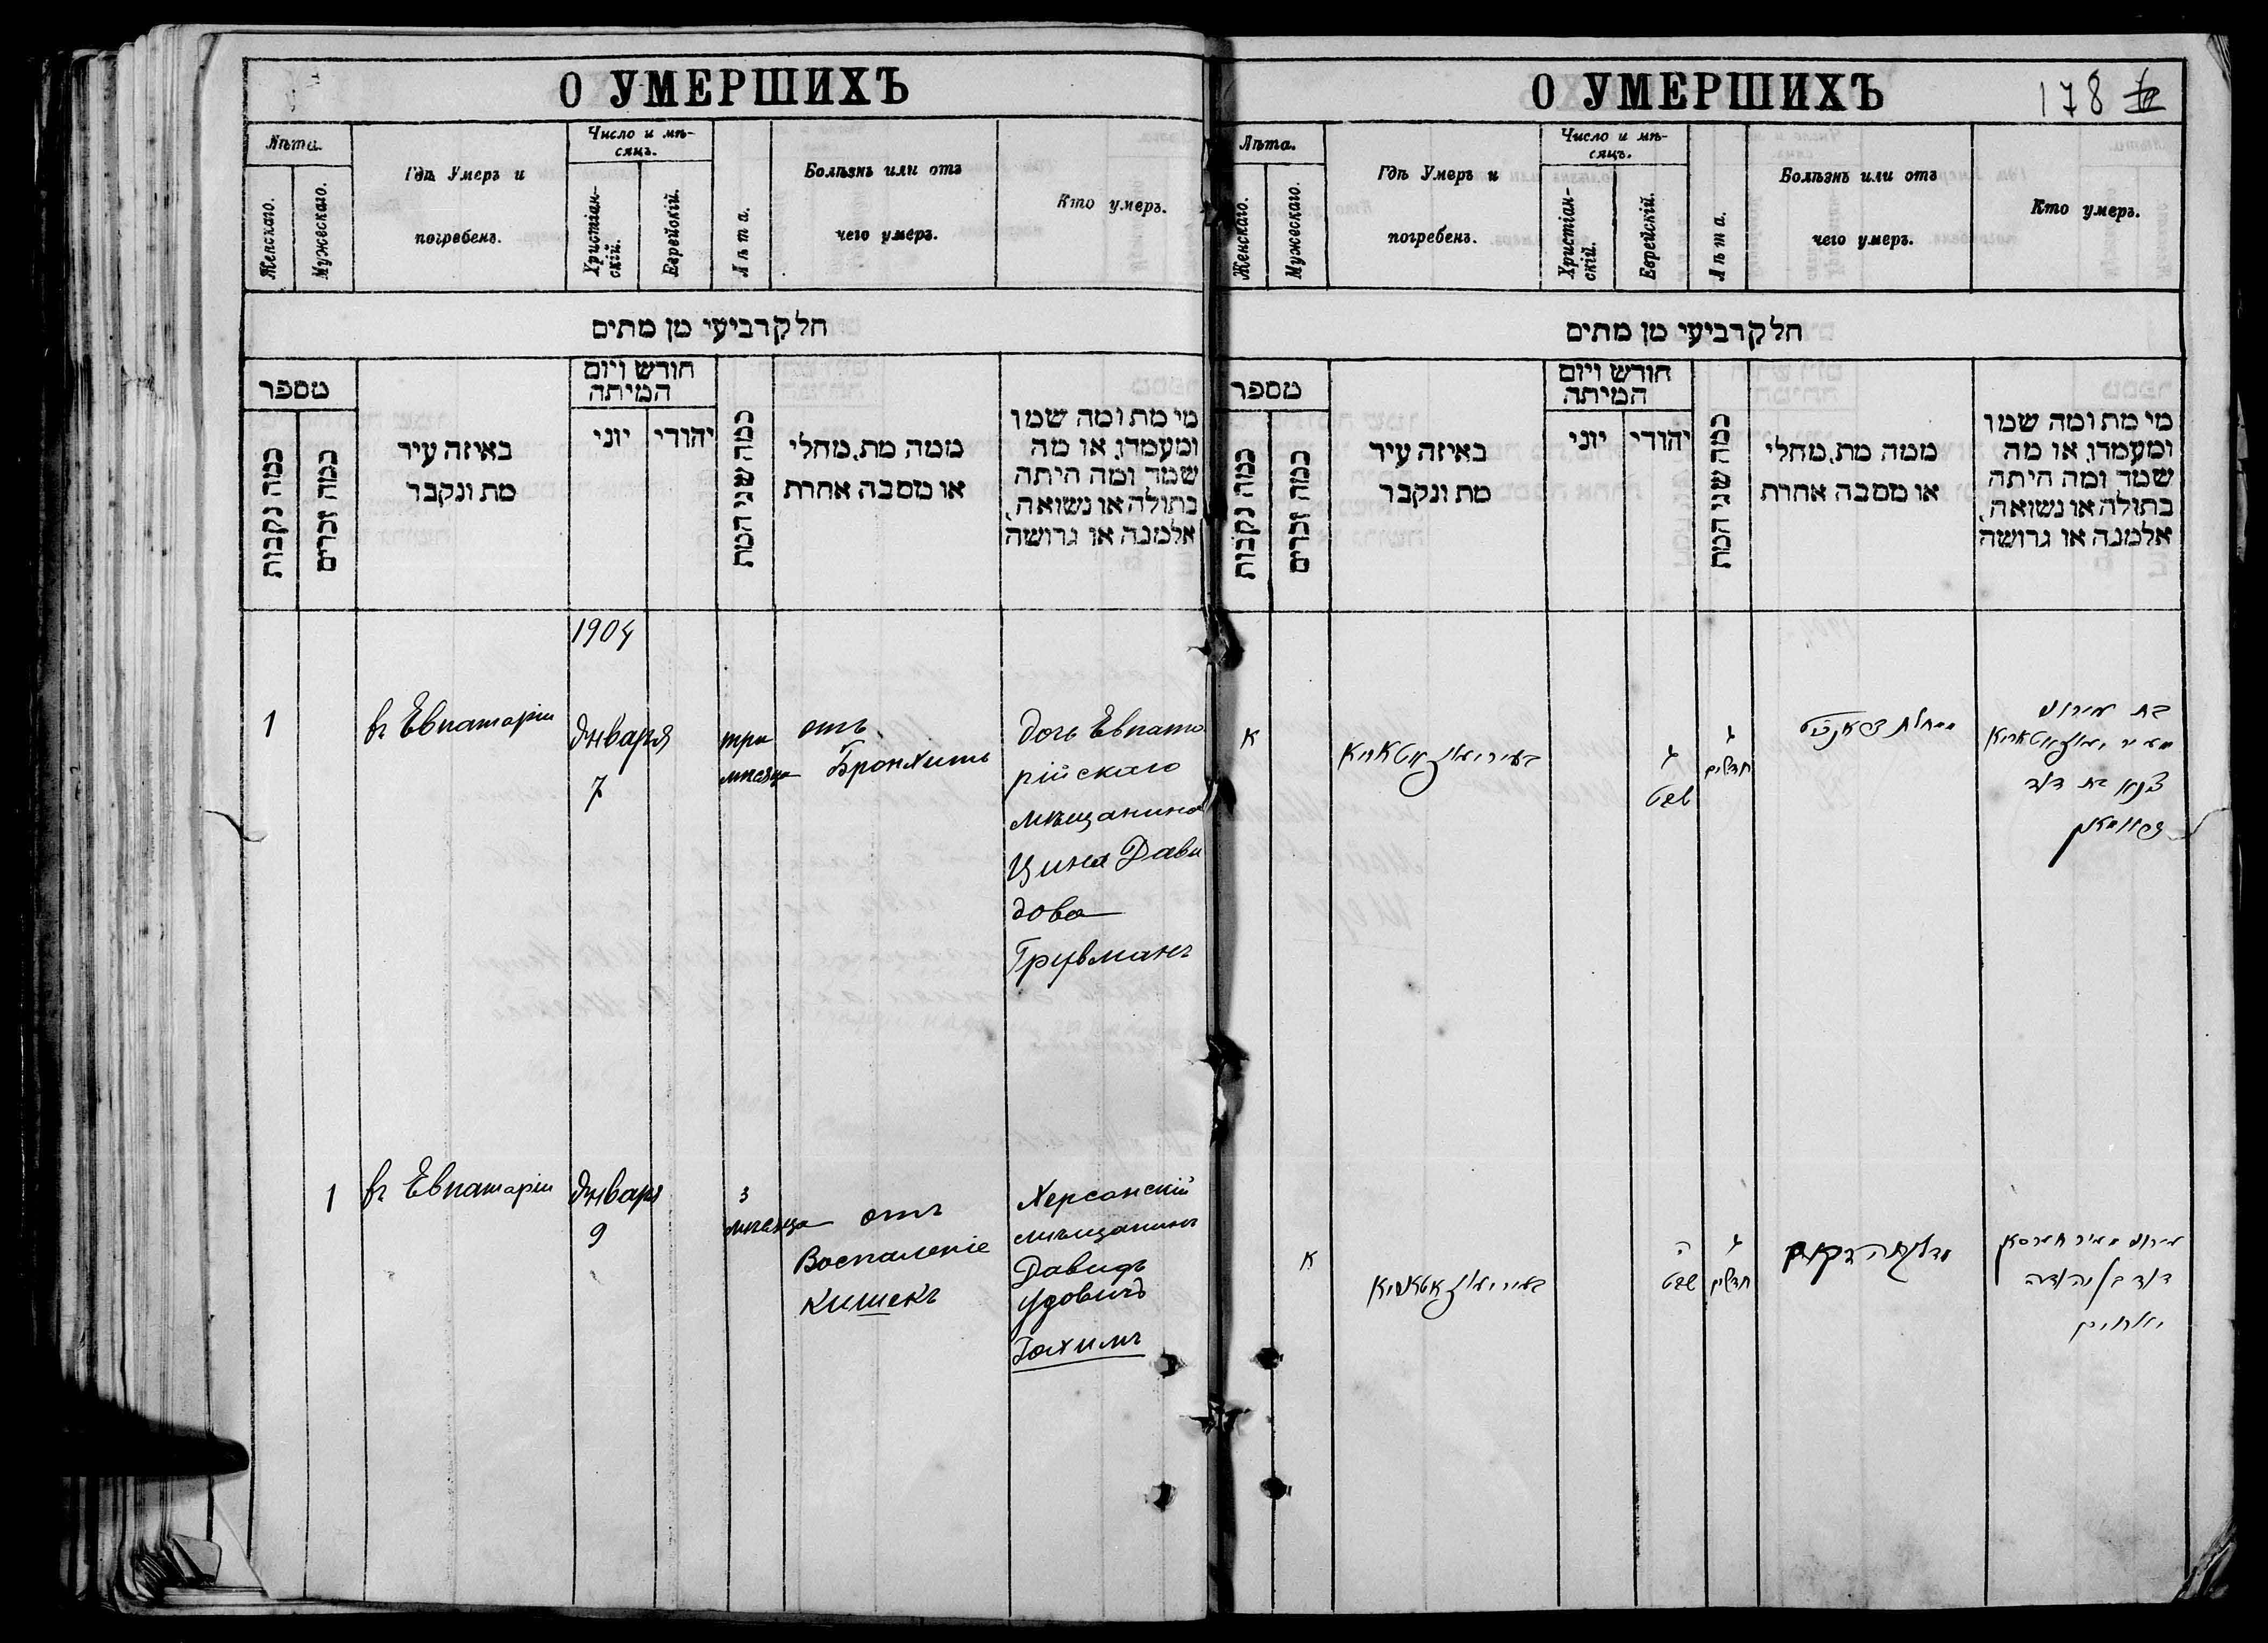 О УМЕРШИХЪ
Лѣта.
Женскаго.
Мужескаго.
Гдѣ Умеръ и
погребенъ.
Число и мѣ-
сяцъ.
Христіан-
скій.
Еврейскій.
Лѣта.
Болѣзнь или отъ
чего умеръ.
Кто умеръ.
חלק רביעי מן מתים
מספר
כמה נקבות
כמה זכרים
באיזה עיר
מת ונקבר
חודש ויום
המיתה
יוני
יהודי
כמה שני המת
ממה מת, מחלי
או מסבה אחרת
מי מת ומה שמו
ומעמדו, או מה
שמה ומה היתה
בתולה או נשואה,
אלמנה או גרושה
1904
1
въ Евпаторіи
Января
7
три
мѣсяца
отъ
Бронхитъ
дочь Евпато
рійскаго
мѣщанина
Цина Дави
дова
Грувманъ
1
въ Евпаторіи
Января
9
3
мѣсяца
отъ
Воспаленіе
кишекъ
Херсонскій
мѣщанинъ
Давидъ
Удовичъ
Іохимъ
О УМЕРШИХЪ
178
Лѣта.
Женскаго.
Мужескаго.
Гдѣ Умеръ и
погребенъ.
Число и мѣ-
сяцъ.
Христіан-
скій.
Еврейскій.
Лѣта.
Болѣзнь или отъ
чего умеръ.
Кто умеръ.
חלק רביעי מן מתים
מספר
כמה נקבות
כמה זכרים
באיזה עיר
מת ונקבר
חודש ויום
המיתה
יוני
יהודי
כמה שני המת
ממה מת, מחלי
או מסבה אחרת
מי מת ומה שמו
ומעמדו, או מה
שמה ומה היתה
בתולה או נשואה,
אלמנה או גרושה
א
ג
שבט
ג
חדשים
בת
בת דוד
א
ה
שבט
ג
חדשים
דוד בן יהודה